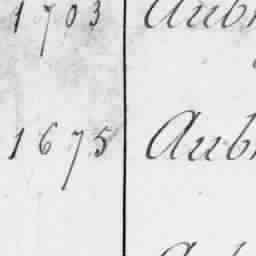 1703 Aub
1675 Aub